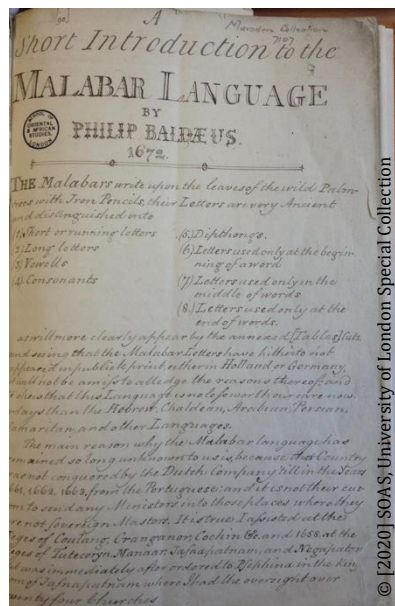 A
Marsden Collection
7107
Short Introduction to the
MALABAR LANGUAGE
BY
PHILIP BALDÆUS.
1672.
SCHOOL OF ORIENTAL & AFRICAN STUDIES, LONDON
THE Malabars write upon the leaves of the wild Palm
trees with Iron Pencils, their Letters are very Ancient
and distinguished into
Short or running letters
Long letters
Vowells
Consonants
(5.) Dipthongs.
(6) Letters used only at the begin-
ning of a word
(7) Letters used only in the
middle of words
(8.) Letters used only at the
end of words.
as will more clearly appear by the annexed [Table] Cutz
and seeing that the Malabar Letters have hitherto not
appeared in publick print either in Holland or Germany,
shall not be amiss to alledge the reasons thereof, and
shew that this Language is no less worth our care now
days than the Hebrew, Chaldean, Arabian, Persian,
Samaritan, and other Languages.
The main reason why the Malabar language has
remained so long unknown to us is, because that Country
was not conquered by the Dutch Company till in the Years
1661, 1662, 1663, from the Portuguese: and it is not their cus-
tom to send any Ministers into those places where they
are not sovereign Masters. It is true I assisted at the
sieges of Coulang, Cranganor, Cochin &c. and 1658 at the
sieges of Tutecoryn, Manaar, Jafnapatnam, and Negapatan
I was immediately after ordered to in the King
dom of Jafnapatnam where I had the oversight over
twenty four Churches
© [2020] SOAS, University of London Special Collection